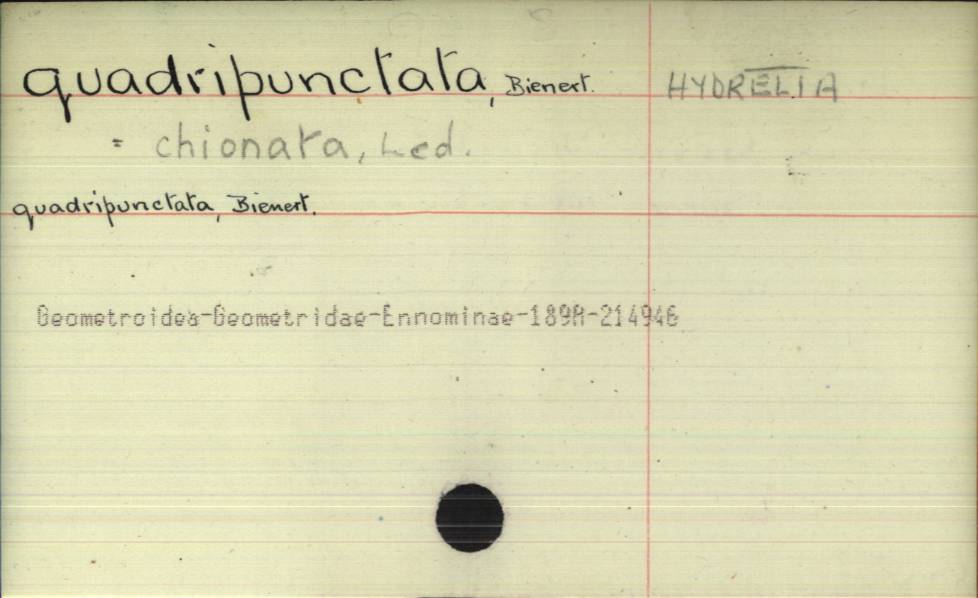 quadripunctata, Bienert. HYDRELIA
= chionata, Led.
quadripunctata, Bienert.
Geometroidea-Geometridae-Ennominae-189A-214946